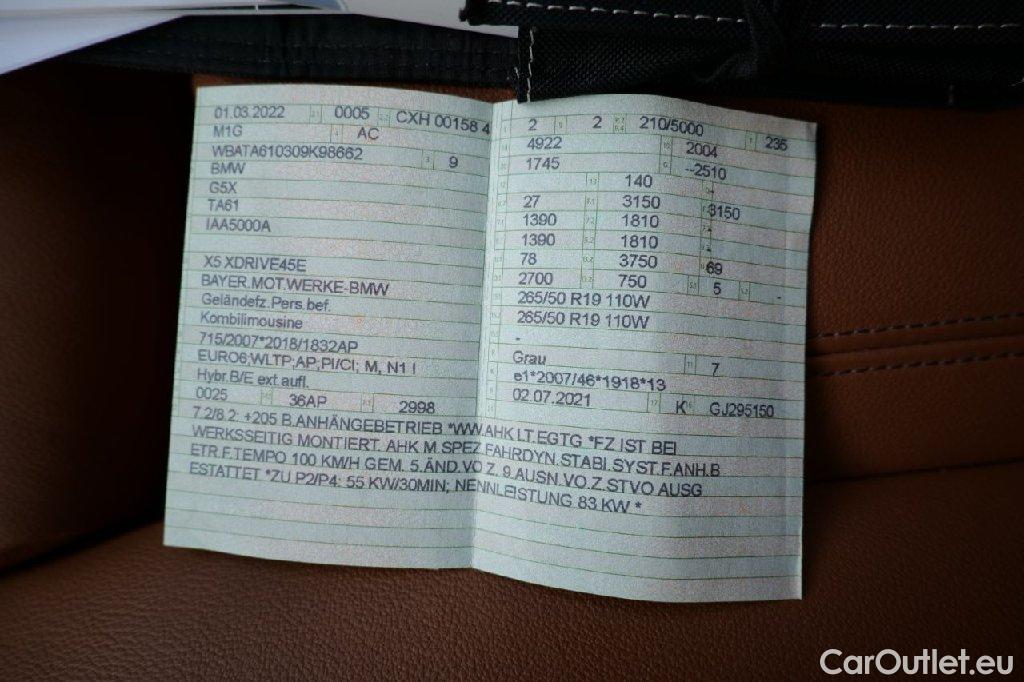 01.03.2022 0005 CXH 00158 4
M1G AC
WBATA610309K98662 9
BMW
G5X
TA61
IAA5000A
X5 XDRIVE45E
BAYER.MOT.WERKE-BMW
Geländefz.Pers.bef.
Kombilimousine
715/2007*2018/1832AP
EURO6;WLTP;AP;PI/CI; M, N1 I
Hybr.B/E ext.aufl.
0025 36AP 2998
2 2 210/5000 235
4922 2004
1745 --2510
140 -
27 3150 3150
1390 1810 -
1390 1810 -
78 3750 69
2700 750 5 -
265/50 R19 110W
265/50 R19 110W
-
Grau 7
e1*2007/46*1918*13
02.07.2021 K GJ295150
7.2/8.2: +205 B.ANHÄNGEBETRIEB *WW.AHK LT.EGTG *FZ.IST BEI
WERKSSEITIG MONTIERT. AHK M.SPEZ.FAHRDYN.STABI.SYST.F.ANH.B
ETR.F.TEMPO 100 KM/H GEM. 5.ÄND.VO Z. 9.AUSN.VO.Z.STVO AUSG
ESTATTET *ZU P2/P4: 55 KW/30MIN; NENNLEISTUNG 83 KW *
CarOutlet.eu